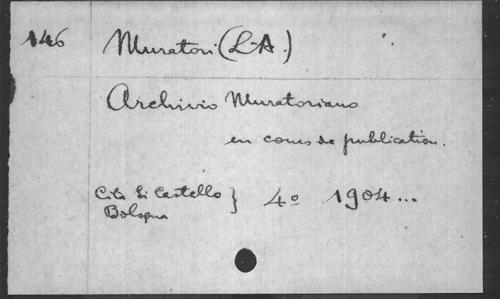 146 Muratori (L-A.)
Archivio Muratoriano
en cours de publication.
Cita di Castello } 4º 1904...
Bologna